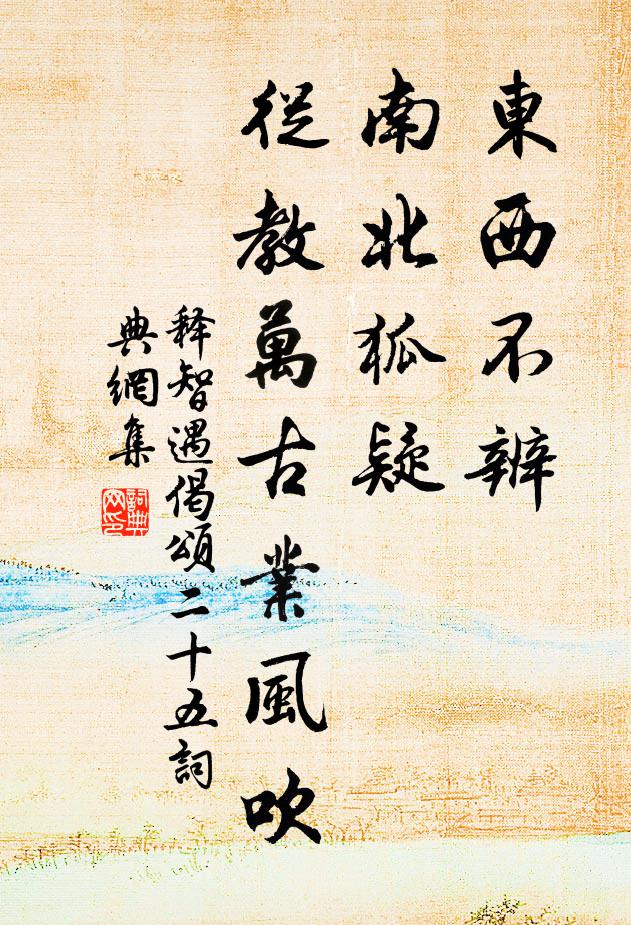 東西不辨
南北狐疑
從教萬古業風吹
释智遇偈頌二十五詞
典網集
詞典網印